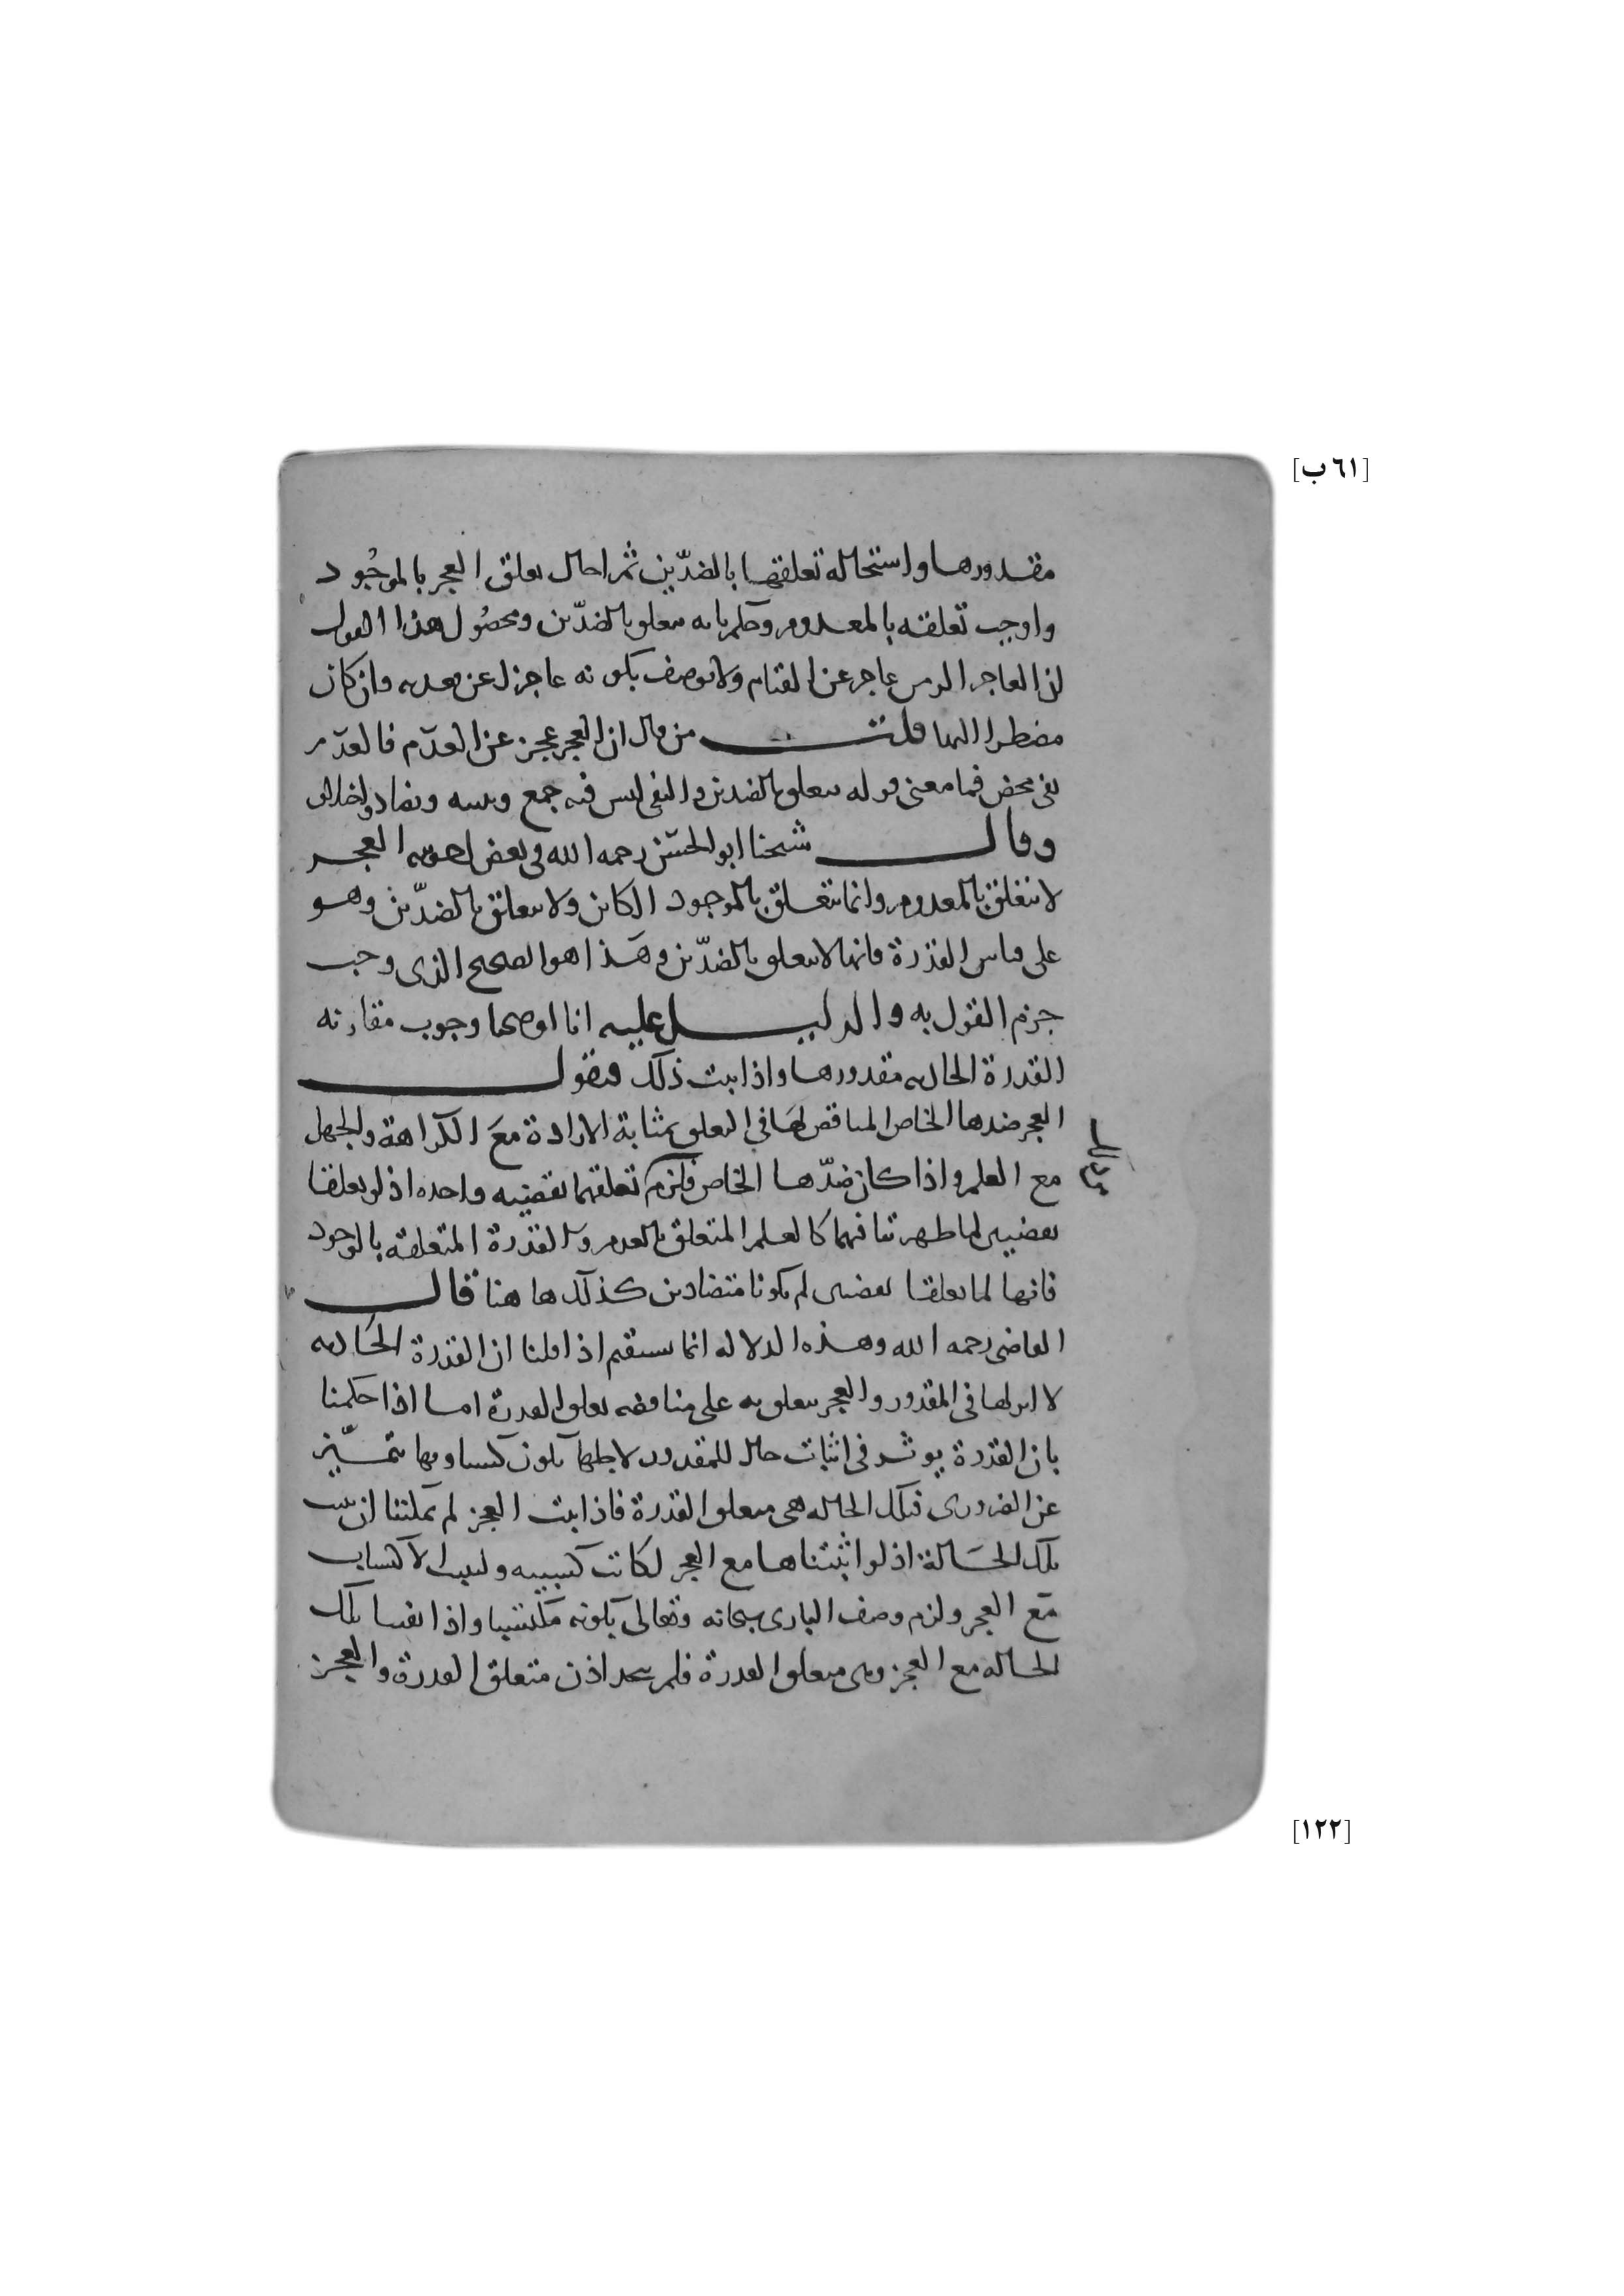 [٦١ ب]
مقدورها واستحالة تعلقها بالضدّين ثم احال تعلق العجز بالموجُود
واوجب تعلقه بالمعدوم وحكم بانه متعلق بالضدّين ومحصُول هذا القول
ان العاجز الزمن عاجز عن القيام ولا يوصف بكونه عاجزا عن قعوده وان كان
مضطرا اليها قلت من قال ان العجز عجز عن العدَم فالعدَم
نفي محض فما معنى قوله يتعلق بالضدين والنفي ليس فيه جمع وتضاد واختلاف
وقال شيخنا ابو الحسَن رحمه الله في بعض اجوبته العجز
لا يتعلق بالمعدوم وانما يتعلق بالموجود الكائن ولا يتعلق بالضدّين وهو
على قياس القدرة فانها لا تتعلق بالضدّين وهَذا هو الصحيح الذي وجب
جزم القول به والدليل عليه انا اوضحنا وجوب مقارنة
القدرة الحادثة مقدورها واذا ثبت ذلك فنقول
العجز ضدها الخاص المناقض لهَا في التعلق بمثابة الارادة معَ الكراهة والجهل
مع العلم واذا كان ضدّها الخاص فلزم تعلقهما بقضية واحدة اذ لو تعلقا
بقضيتين لما ظهر تنافيهما كالعلم المتعلق بالعدم والقدرة المتعلقة بالوجود
فانهما لما تعلقا بقضيتين لم يكونا متضادين كذلك ها هنا قال
القاضي رحمه الله وهذه الدلالة انما تستقيم اذا قلنا ان القدرة الحَادثة
لا اثر لها في المقدور والعجز يتعلق به على مناقضة تعلق القدرة اما اذا حكمنا
بان القدرة يوثر في اثبات حال للمقدور لاجلها يكون كسبا وبها يتميّز
عن الضروري فتلك الحالة هي متعلق القدرة فاذا ثبت العجز لم يمكننا ان نثبت
تلك الحَالة اذ لو اثبتناها مع العجز لكانت كسبية ولثبت الاكتساب
مَع العجز ولزم وصف الباري سبحانه وتعالى بكونه مكتسبا واذا نفينا تلك
الحالة مع العجز وهي متعلق القدرة فلم يتحد اذن متعلق القدرة والعجز
[١٢٢]